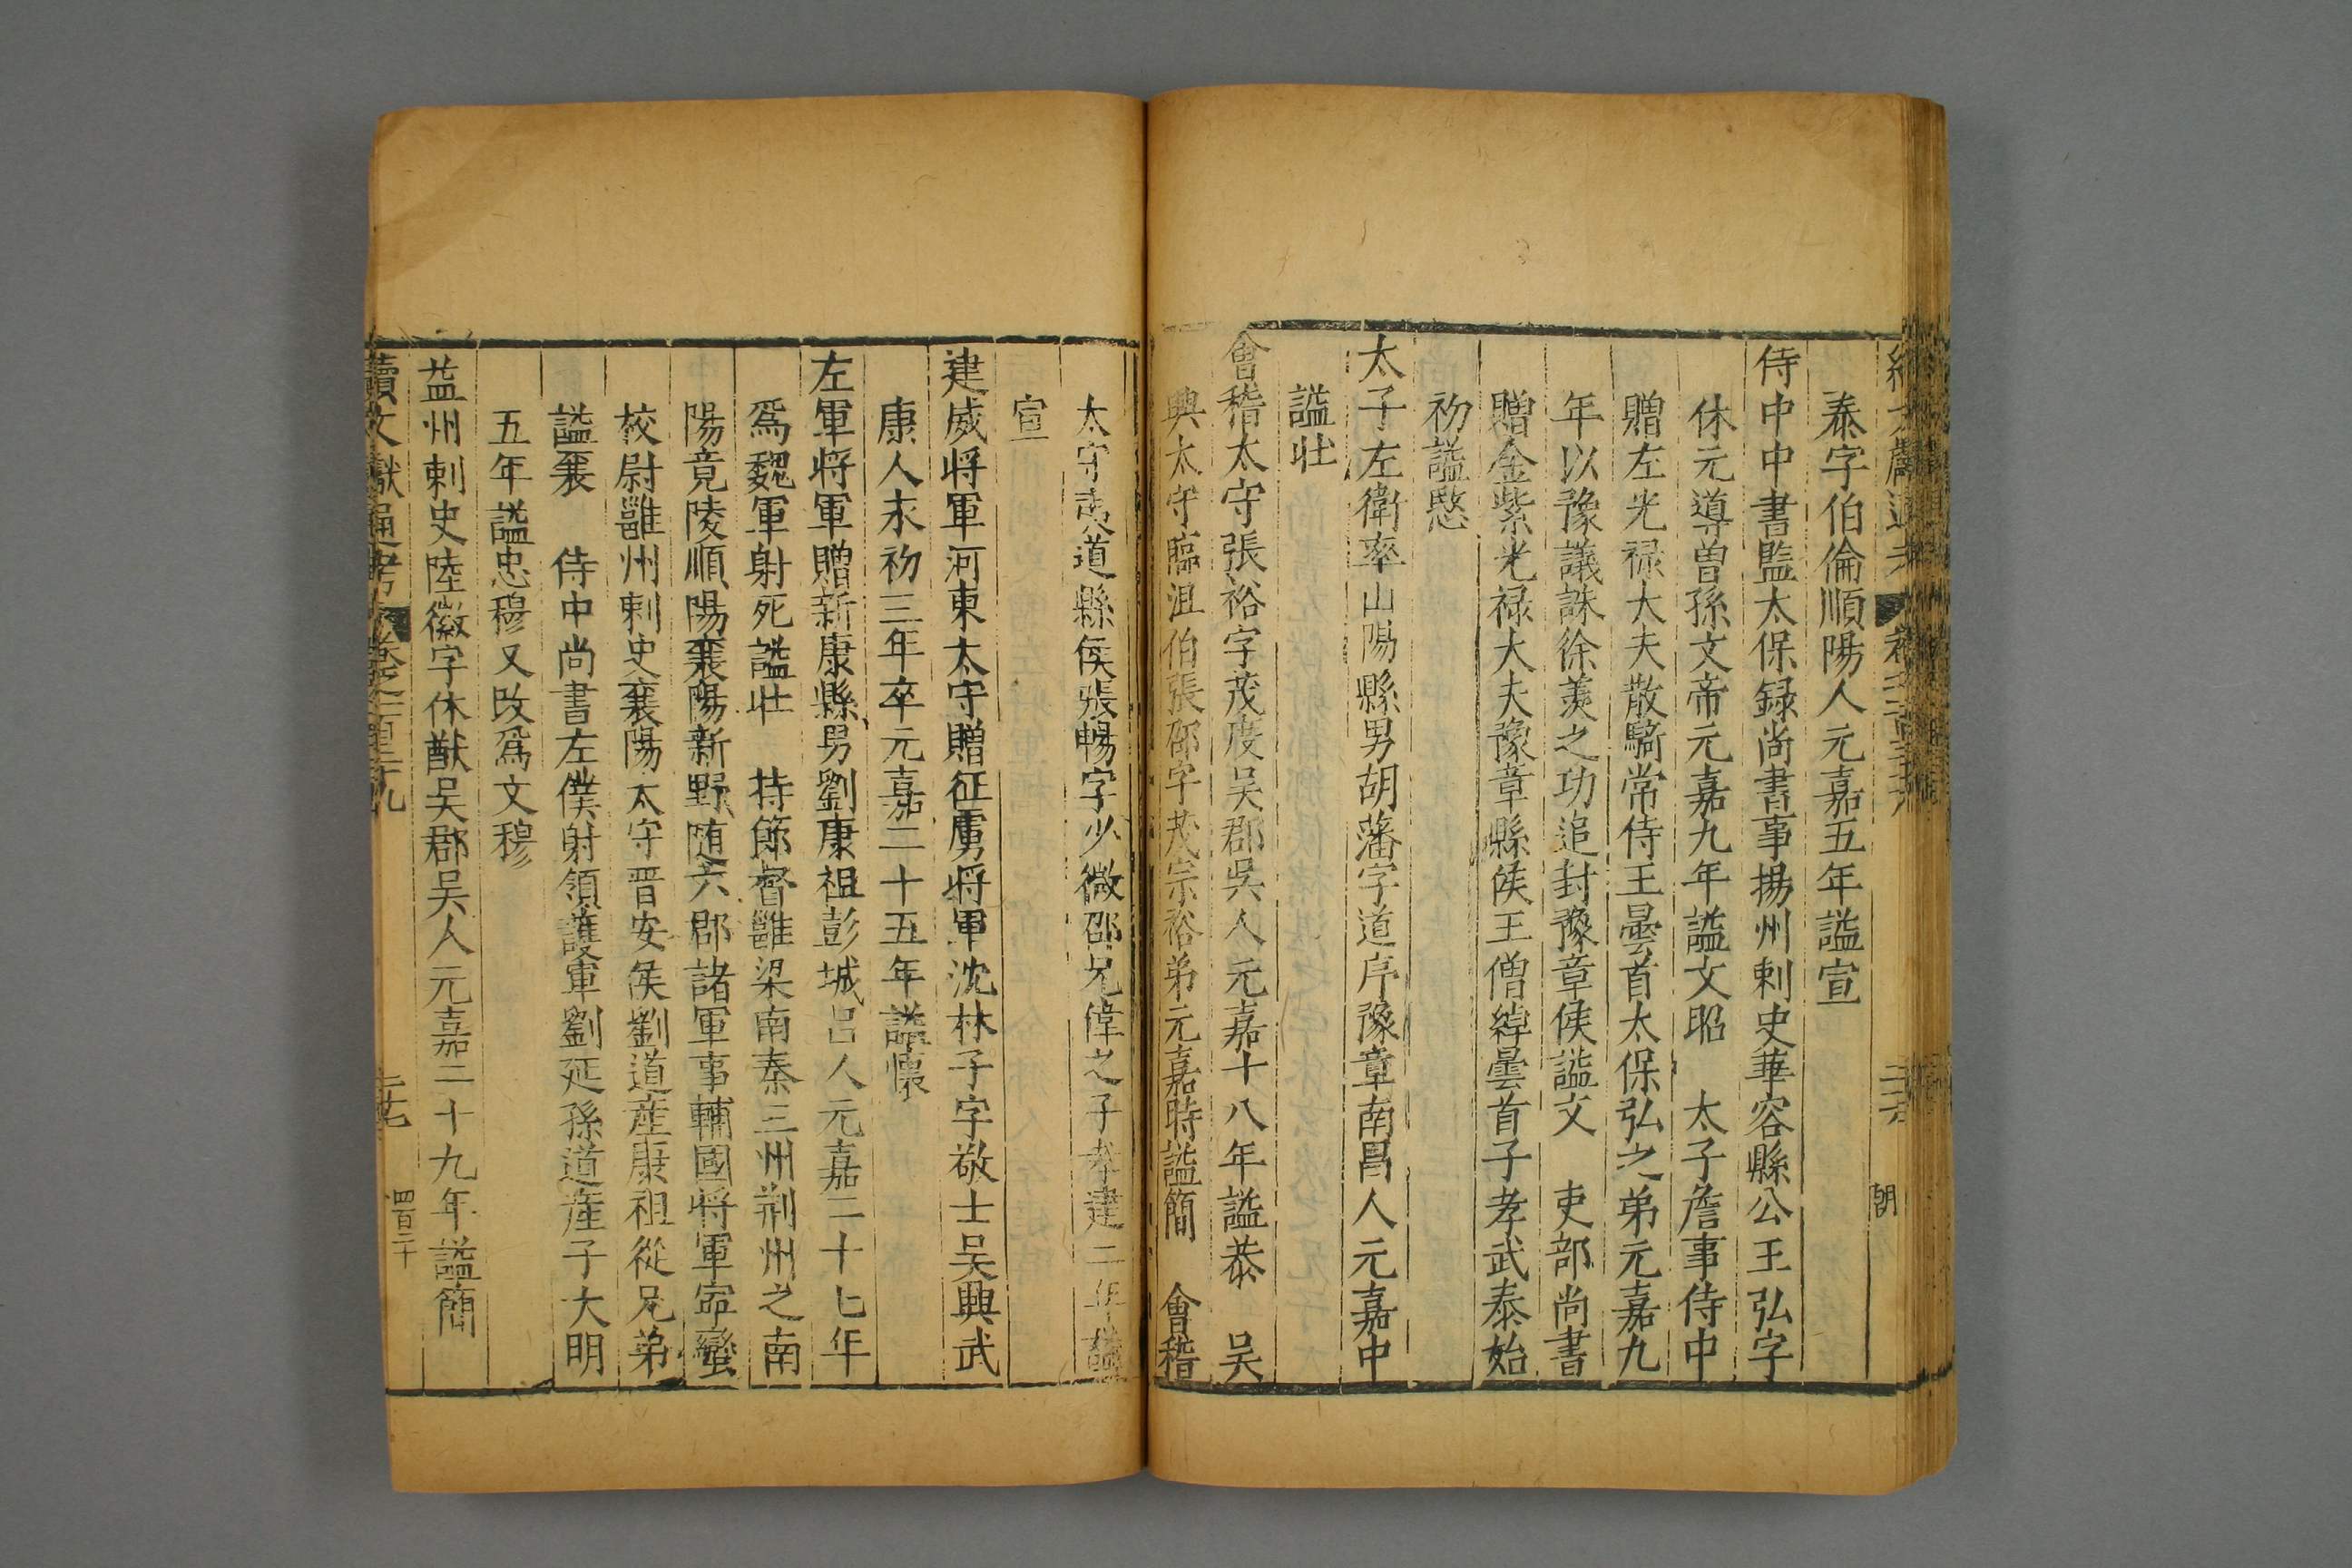 泰字伯倫順陽人元嘉五年謚宣
侍中中書監太保録尚書事揚州刺史華容縣公王弘字
休元導曾孫文帝元嘉九年謚文昭 太子詹事侍中
贈左光禄大夫散騎常侍王曇首太保弘之弟元嘉九
年以豫議誅徐羨之功追封豫章侯謚文 吏部尚書
贈金紫光禄大夫豫章縣侯王僧綽曇首子孝武泰始
初謚愍
太子左衛率山陽縣男胡藩字道序豫章南昌人元嘉中
謚壯
會稽太守張裕字茂度吳郡吳人元嘉十八年謚恭 吴
興太守臨沮伯張邵字茂宗裕弟元嘉時謚簡 會稽
太守夷道縣侯張暢字少微邵兄偉之子孝建二年謚
宣
建威将軍河東太守贈征虜将軍沈林子字敬士吴興武
康人永初三年卒元嘉二十五年謚懷
左軍将軍贈新康縣男劉康祖彭城呂人元嘉二十七年
爲魏軍射死謚壯 持節督雝梁南秦三州荆州之南
陽竟陵順陽襄陽新野随六郡諸軍事輔國将軍寕蠻
校尉雝州刺史襄陽太守晋安侯劉道産康祖從兄弟
謚襄 侍中尚書左僕射領護軍劉延孫道産子大明
五年謚忠穆又改爲文穆
益州刺史陸徽字休猷吴郡吴人元嘉二十九年謚簡
續文獻通考 卷之一百三十九 二十七 四百二十